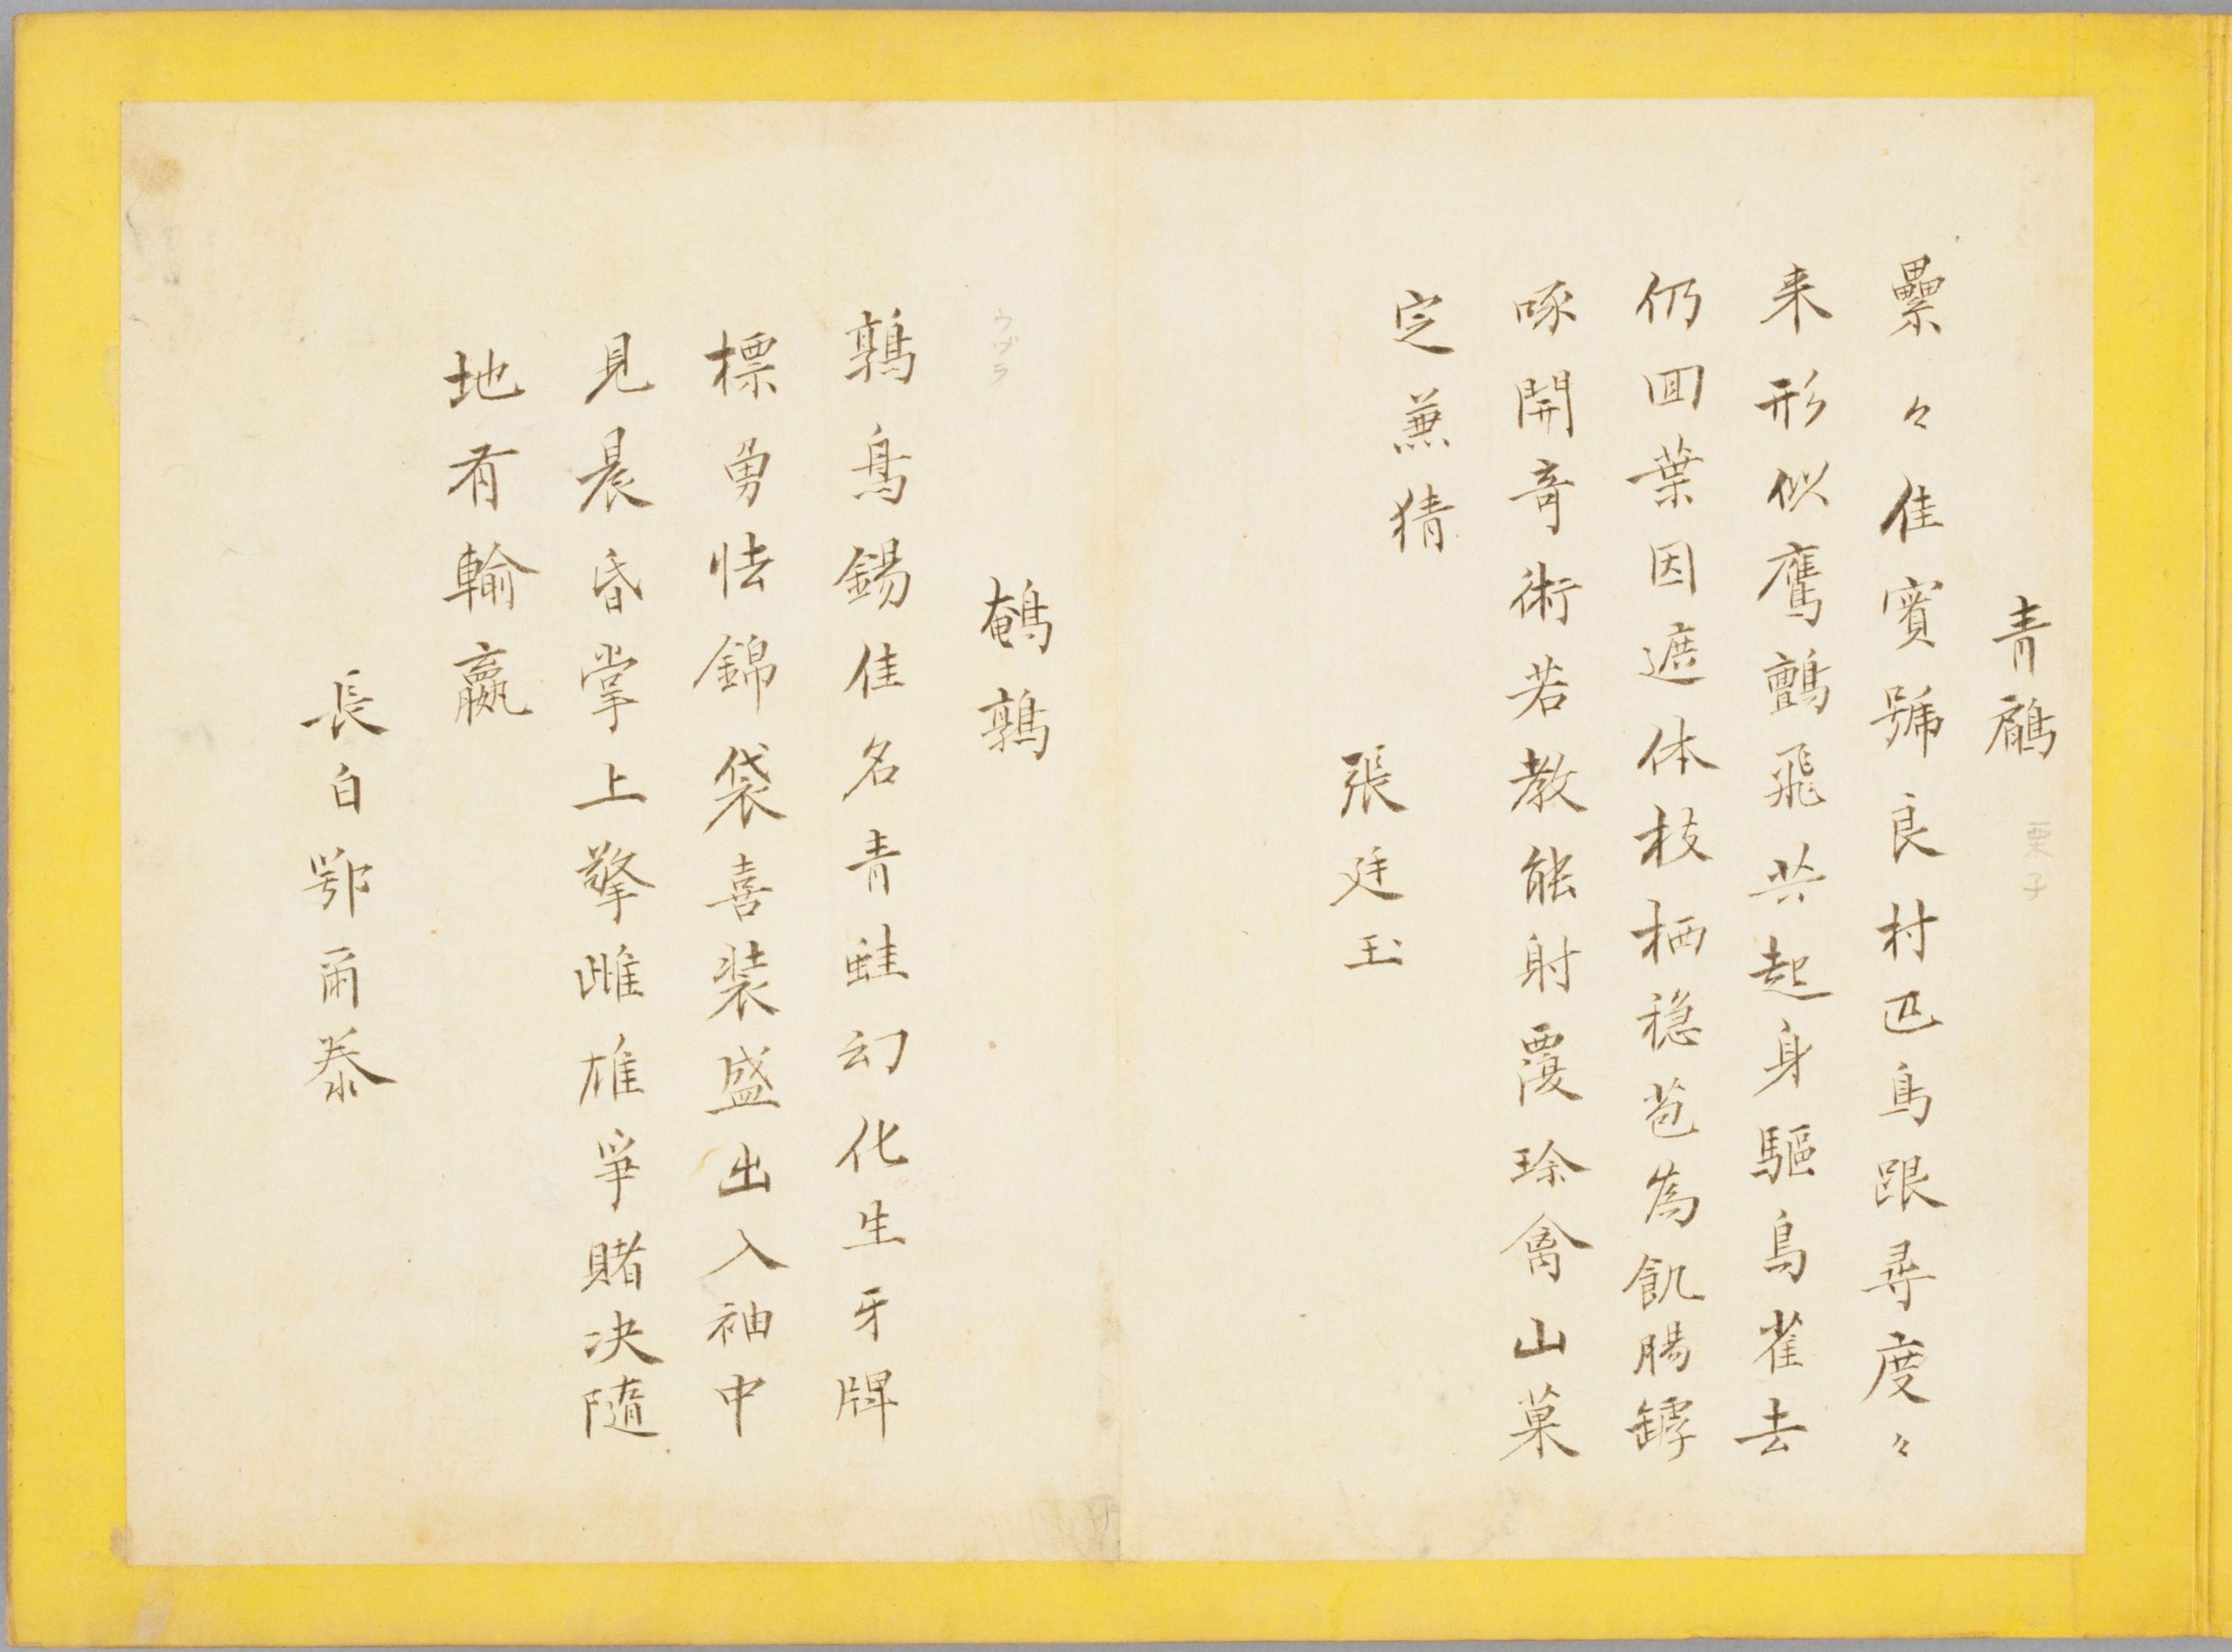 青鸘
栗子
纍々佳賓號良村匹鳥跟尋度々
来形似鷹鸇飛共起身驅鳥雀去
仍回葉因遮体枝栖穏苞為飢腸罅
啄開奇術若教能射覆珍禽山菓
定兼猜
張廷玉
ウヅラ
鵪鶉
鶉鳥錫佳名青蛙幻化生牙牌
標勇怯錦袋喜装盛出入袖中
見晨昏掌上擎雌雄爭賭决隨
地有輸贏
長白鄂爾泰